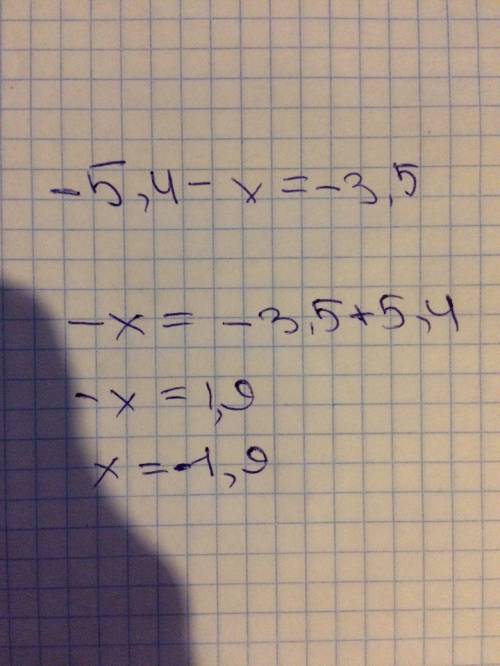 -5,4 - x = -3,5
-x = -3,5+5,4
-x = 1,9
x = -1,9